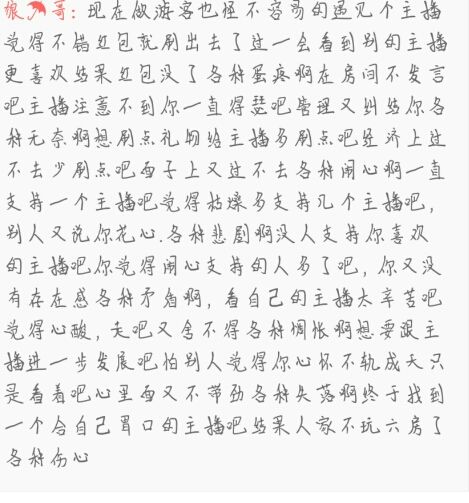 狼🐬哥：现在做游客也怪不容易的遇见个主播
觉得不错红包就刷出去了过一会看到别的主播
更喜欢结果红包没了各种蛋疼啊在房间不发言
吧主播注意不到你一直得瑟吧管理又纠结你各
种无奈啊想刷点礼物给主播多刷点吧经济上过
不去少刷点吧面子上又过不去各种闹心啊一直
支持一个主播吧觉得枯燥多支持几个主播吧，
别人又说你花心.各种悲剧啊没人支持你喜欢
的主播吧你觉得闹心支持的人多了吧，你又没
有存在感各种矛盾啊，看自己的主播太辛苦吧
觉得心酸，走吧又舍不得各种惆怅啊想要跟主
播进一步发展吧怕别人觉得你心怀不轨成天只
是看着吧心里面又不带劲各种失落啊终于找到
一个合自己胃口的主播吧结果人家不玩六房了
各种伤心